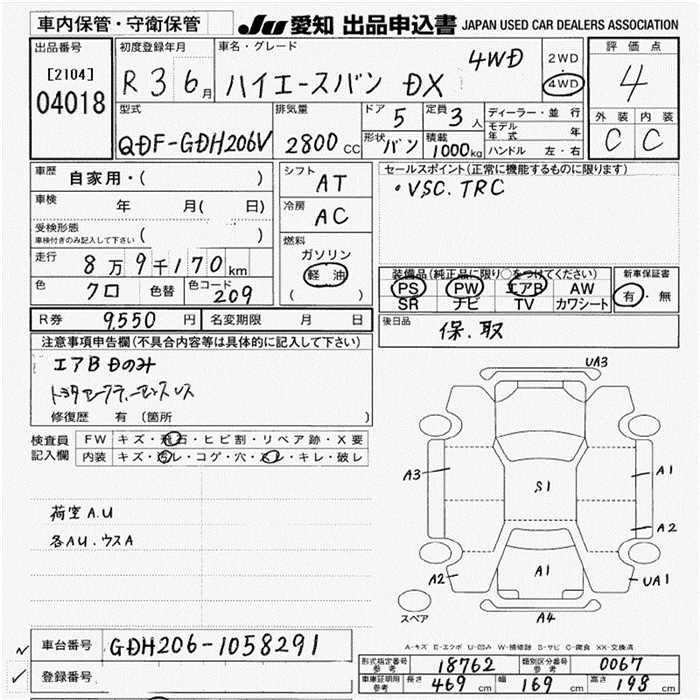 車内保管・守衛保管 JU 愛知 出品申込書 JAPAN USED CAR DEALERS ASSOCIATION
出品番号 初度登録年月 車名・グレード 4WD 2WD 評価点
[2104] R3 6月 ハイエースバン DX 4WD 4
04018
型式 排気量 ドア 5 定員 3人 ディーラー・並行 外装 内装
QDF-GDH206V 2800CC 形状 バン 積載 1000kg モデル年式 年 C C
ハンドル 左・右
車歴 自家用・( ) シフト AT セールスポイント(正常に機能するものに限ります)
・VSC.TRC
車検 年 月( 日) 冷房 AC
受検形態
車検付きのみ記入して下さい ( ) 燃料
ガソリン
走行 8万9千170km 軽油 装備品(純正品に限り○をつけてください) 新車保証書
PS PW エアB AW 有・無
色 クロ 色替 色コード 209 ( ) SR ナビ TV カワシート
R券 9,550円 名変期限 月 日 後日品 保.取
注意事項申告欄(不具合内容等は具体的に記入して下さい)
エアB Dのみ
トヨタセーフティーセンスレス
修復歴 有 〔箇所 〕
検査員 FW キズ・飛石・ヒビ割・リペア跡・X要
記入欄 内装 キズ・汚レ・コゲ・穴・スレ・キレ・破レ
荷室A.U
各AU.ウスA
UA3
A3 A1
S1
A2
A1
A2 UA1
A4
スペア
A-キズ E-エクボ U-凹み W-補修跡 S-サビ C-腐食 XX-交換済
車台番号 GDH206-1058291
登録番号
形式指定番号 参考 18762 類別区分番号 参考 0067
車庫証明用 参考 長さ 469cm 幅 169cm 高さ 198cm